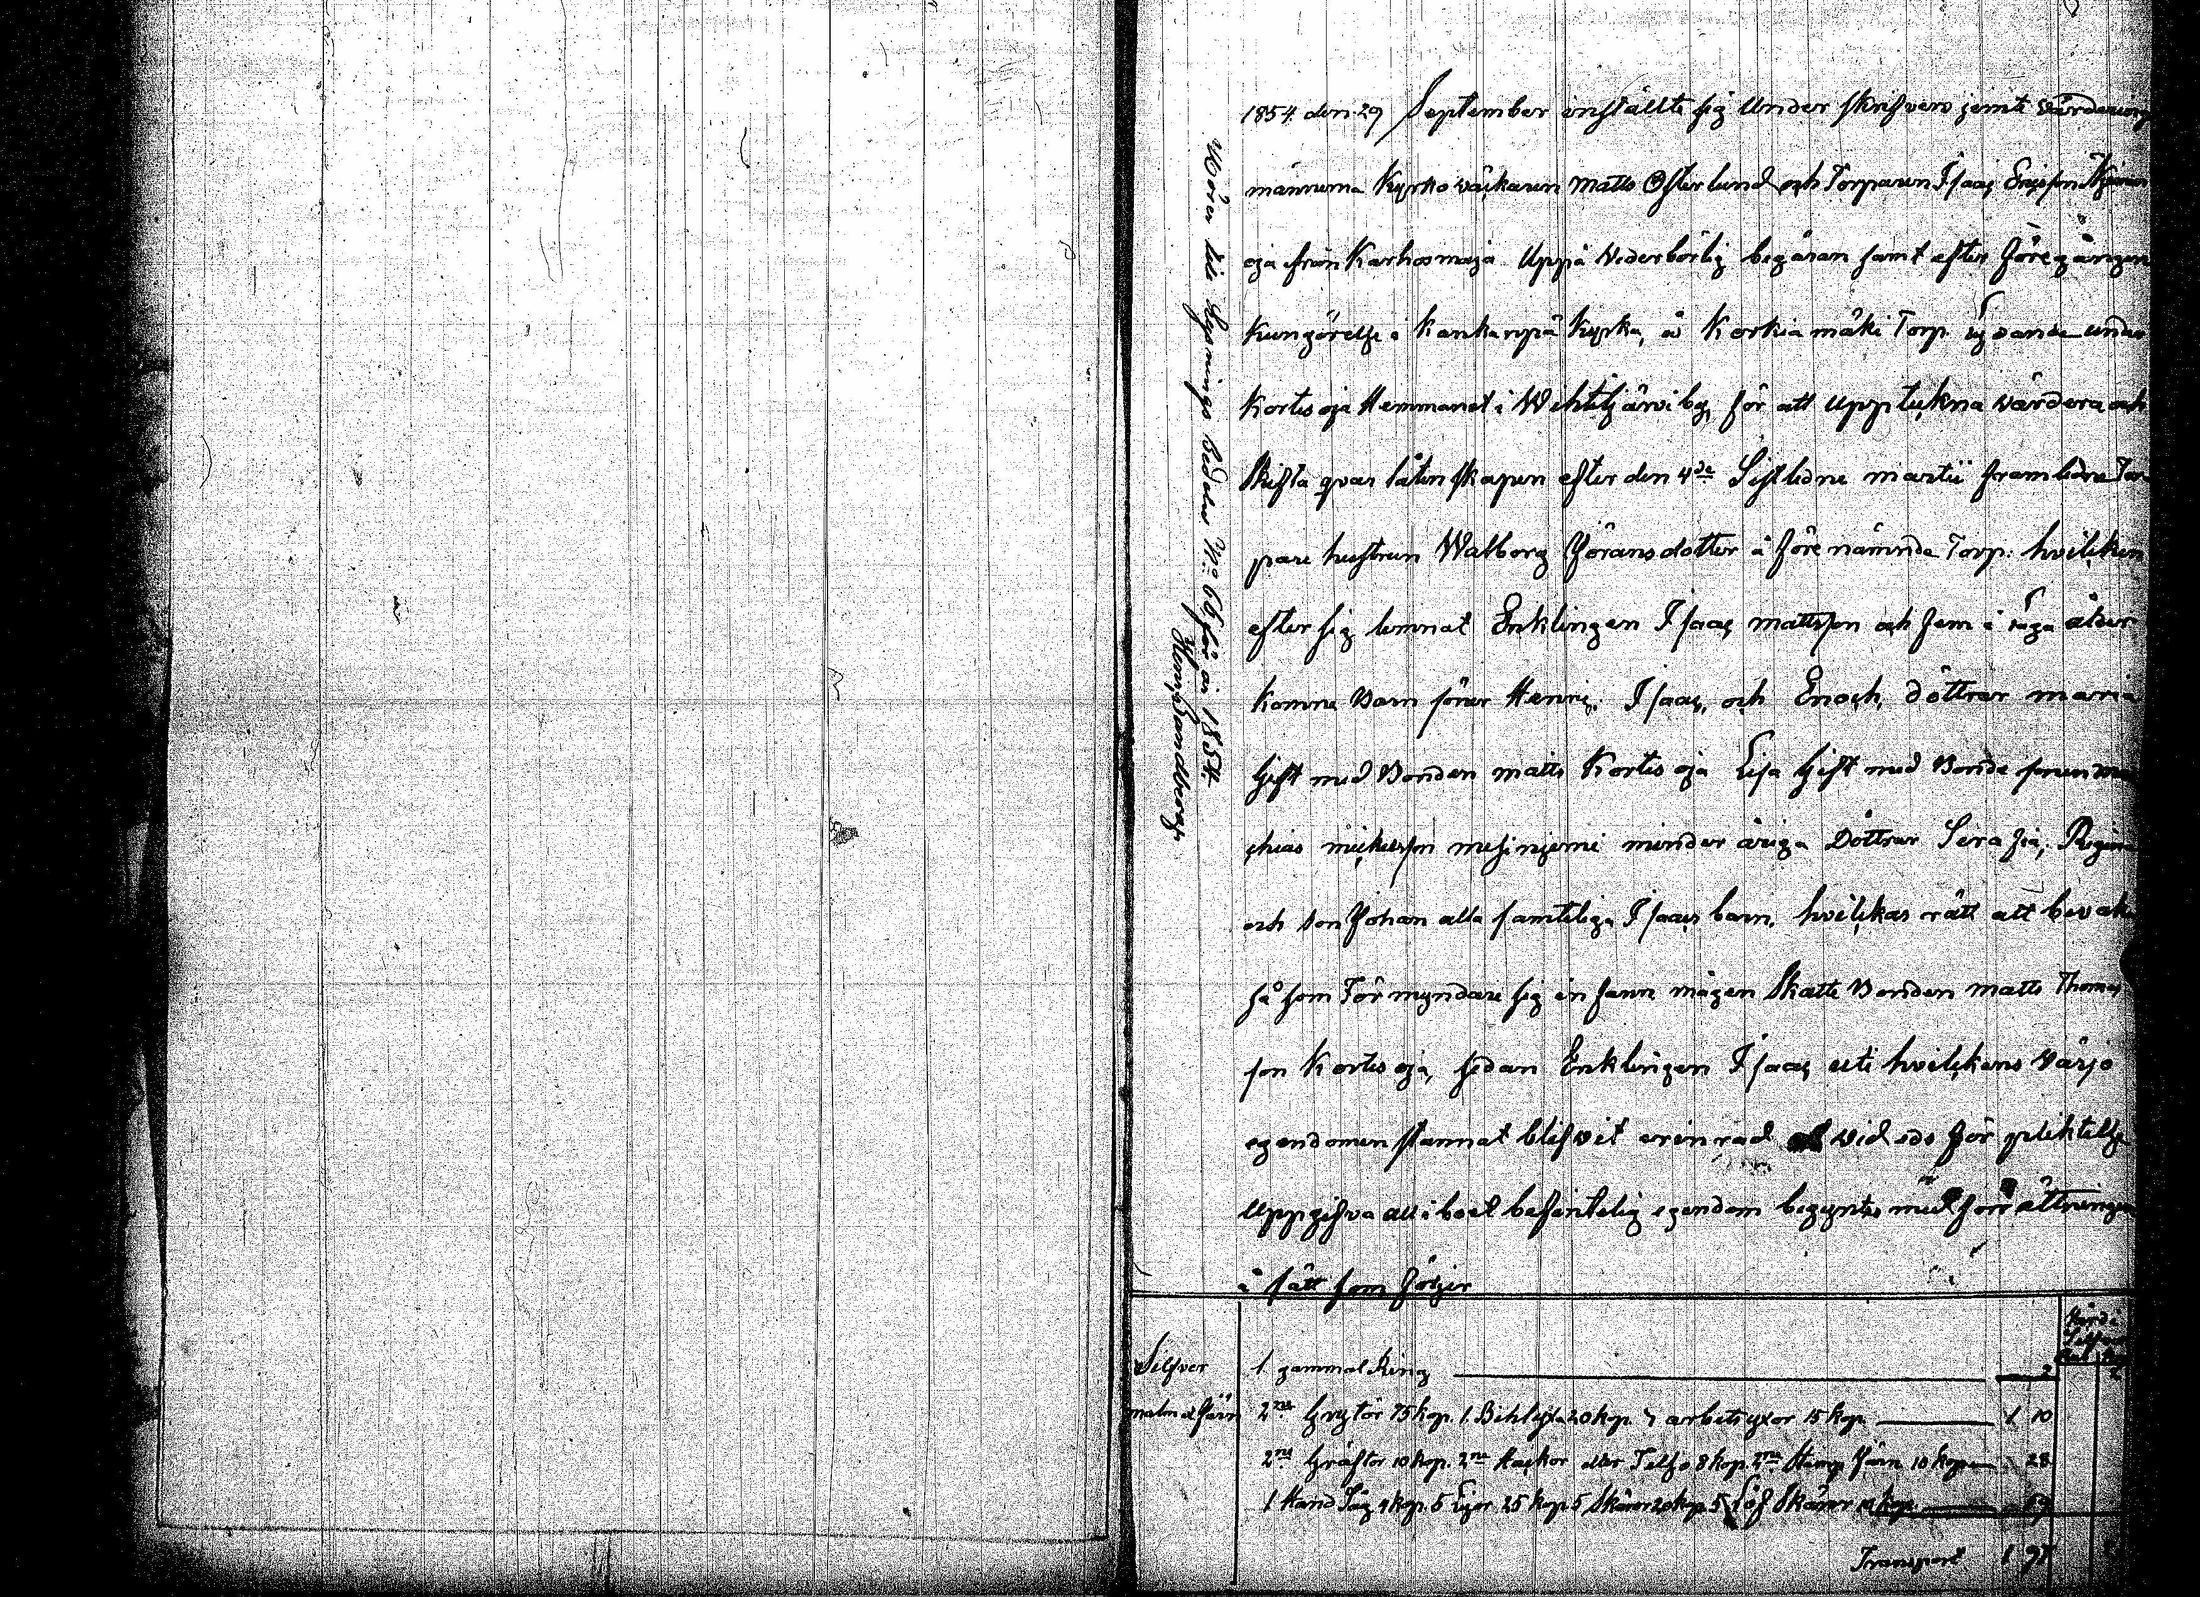 1854 den 29 September inställte sig Under skrifven jemte värderings
männerna Kyrko väckaren Matts Österlund och Torparen Isaac Ericsson
oja från Karhosmaja Uppå Wederbörlig begäran samt efter föregången
Kungörelse i Kankarpä Kyrka, å Korkiamäki Torp lydande under
Kortesoja Hemmanet i Wehkejärvi by, för att Upptekna värdera och
Skifta qvarlåtenskapen efter den 4de Sistledne martii framledne Tor-
pare hustrun Walborg Jöransdotter å förenämnde Torp. hvilcken
efter sig lemnat Enklingen Isaac mattsson och fem i laga ålder
komne Barn söner Henric, Isaac, och Enoch, döttrar maria
Gift med Bonden matts Kortesoja Lisa Gift med Bonde sonen Ma
chias mickelsson minder åriga Döttrar Serafia, Regina
och son Johan alla samteliga Isaacs barn, hvilckas rätt att bevaka
såsom Förmyndare sig infann mågen Skatte Bonden matts Thomas
son Kortesoja, sedan Enklingen Isaac uti hvilckens värjo
egendomen stannat blifvit erinrad vid eds förplicktelse
Uppgifva all i boet befintelig egendom begyntes med förrättningen
å sätt som följer
Hörer till Lysnings Bedelen No 66 för år 1854.
Henr. Sandberg
Värde i
Silfver
Rub. Kop.
Silfver 1 gammal Ring 2
malm & Järn 2ne Grytor 75 kop. 1 Bihlyxa 20 kop. 3 arbets yxor 15 kop. 1 10
2ne Gräftor 10 kop. 2ne Hackor eller Telso 8 kop. 2ne Stämp Järn 10 kop. 28
1 Hand Såg 4 kop. 5 Liar 25 kop 5 Skäror 20 kop 5 Löf Skäror kop 59
Transport 1 97